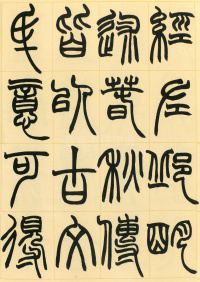 經左邱明
述春秋傳
皆以古文
氒意可得